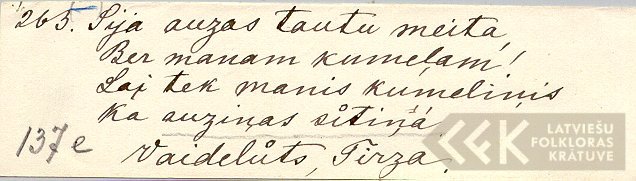 265. Sija auzas tautu meita,
Ber manam kumeļam!
Lai tek manis kumeliņis
Ka auziņas sītiņā.
137e
Vaidelūts, Tirza.
LATVIEŠU
FOLKLORAS
KRĀTUVE